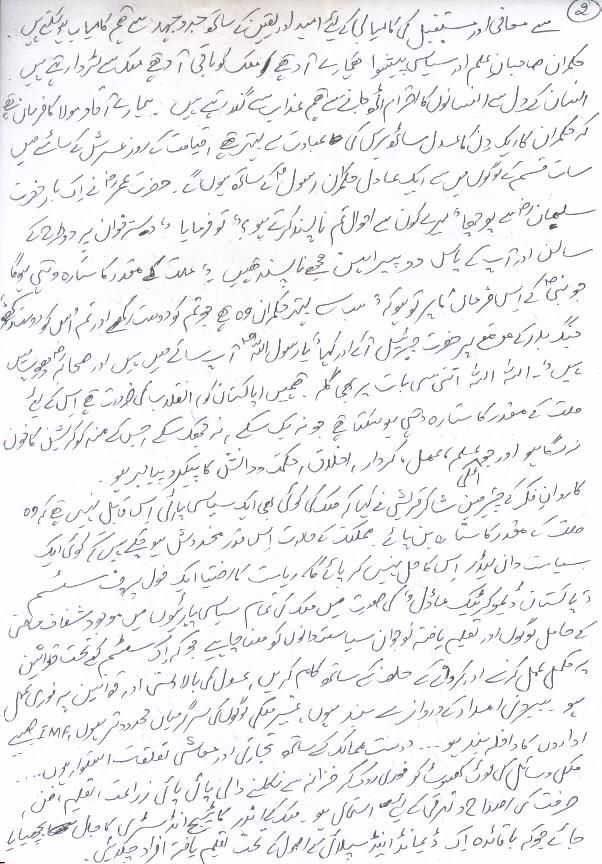 ②
سے معافی اور مستقبل کی کامیابی کے لیے امید اور یقین کے ساتھ جدوجہد سے ہم کامیاب ہو سکتے ہیں
حکمران صاحبانِ علم اور سیاسی پیشوا ہمارے آدھے ملک کو باقی آدھے ملک سے لڑوا رہے ہیں
انسان کے دل سے انسانوں کا احترام اٹھ جانے سے ہم عذاب سے گذر رہے ہیں۔ ہمارے آقا و مولا کا فرمان ہے
کہ حکمران کا ایک دن کا عدل ساٹھ برس کی عبادت سے بہتر ہے، قیامت کے روز عرش کے سائے میں
سات قسم کے لوگوں میں سے ایک عادل حکمران رسولؐ کے ساتھ ہوں گے۔ حضرت عمرؓ نے اک بار حضرت
سلیمانؓ سے پوچھا "میرے کون سے احوال تم ناپسند کرتے ہو؟" تو فرمایا "دستر خوان پر دو طرح کے
سالن اور آپ کے پاس دو پیراہن مجھے ناپسند ہیں" ملت کے مقدر کا ستارہ وہی ہوگا
جو نبیؐ کے اس فرمان پر پورا ہو کہ "سب سے بہتر حکمران وہ ہے جو تم کو دوست رکھے اور تم اُس کو دوست رکھو
جنگ بدر کے موقع پر حضرت جبرئیل آئے اور کہا "یا رسول اللہؐ آپ سائے میں ہیں اور صحابہؓ دھوپ میں
ہیں"۔ اللہ اللہ اتنی سی بات پر بھی گلہ۔ ہمیں پاکستان کو انقلاب کی ضرورت ہے اس کے لیے
ملت کے مقدر کا ستارہ وہی ہو سکتا ہے جو نہ بِک سکے، نہ جھک سکے، جس کے منہ کو کرپشن کا خون
نہ لگا ہو اور جو علم، عمل، کردار، اخلاق، حکمت و دانش کا پیکر و پیامبر ہو۔
کاروانِ فکر کے چیئرمین شاکر قریشی نے کہا کہ ملک کی کوئی بھی ایک سیاسی پارٹی اس قابل نہیں ہے کہ وہ
ملت کے مقدر کا ستارہ بن پائے۔ مملکت کے حالات اس قدر مخدوش ہو چکے ہیں کہ کوئی ایک
سیاست دان لیڈر اس کا حل نہیں کر پائے گا، ریاست کا اختیار ایک فول پروف سسٹم
"پاکستان ڈیموکریٹک عادل" کی صورت میں ملک کی تمام سیاسی پارٹیوں میں موجود شفاف ماضی
کے حامل لوگوں اور تعلیم یافتہ نوجوان سیاستدانوں کو ملنا چاہیے جو کہ اِک سسٹم کے تحت قوانین
پہ مکمل عمل کرنے اور کروانے کے حلف کے ساتھ کام کریں، عدل کی بالا دستی اور قوانین پہ فوری عمل
ہو۔ بیرونی امداد کے دروازے بند ہوں، غیر ملکی لوگوں کی سرگرمیاں محدود تر ہوں، IMF جیسے
اداروں کا داخلہ بند ہو... دوست ممالک کے ساتھ تجارتی اور معاشی تعلقات استوار ہوں....
ملکی وسائل کی لوٹ کھسوٹ کو فوری روک کر خزانہ سے نکلنے والی پائی پائی زراعت، تعلیم، فن،
حرفت کی اصلاح و ترقی کے لیے استعمال ہو۔ ملک کے اندر کاٹیج انڈسٹری کا جال بچھایا
جائے جو کہ باقاعدہ اِک ڈیمانڈ اینڈ سپلائی کے اصول کے تحت تعلیم یافتہ افراد چلائیں۔